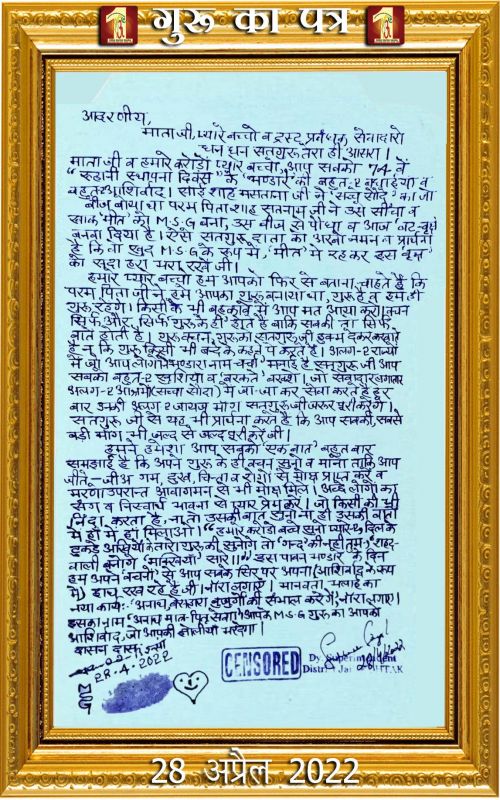 गुरु का पत्र
आदरणीय,
माताजी, प्यारे बच्चो व ट्रस्ट प्रबंधक सेवादारो
धन धन सतगुरु तेरा ही आसरा।
माताजी व हमारे करोड़ों प्यारे बच्चो, आप सबको '74 वें
"रूहानी स्थापना दिवस" के 'भण्डारे' की बहुत-2 बधाईयां व
बहुत-2 आशिर्वाद। साईं शाह मसताना जी ने 'सच्चे सौदे' का जो
बीज बोया था परम पिता शाह सतनाम जी ने उसे सींचा व
खाक 'मीत' को M.S.G बना, उस बीज से पौधा व आज 'वट-वृक्ष'
बनवा दिया है। ऐसे सतगुरु दाता को अरबों नमन व प्रार्थना
है कि वो खुद M.S.G के रूप में, 'मीत' में रहकर इस वृक्ष
को सदा हरा भरा रखें जी।
हमारे प्यारे बच्चो हम आपको फिर से बताना चाहते हैं कि
परम पिता जी ने हमें आपका गुरु बनाया था, गुरु हैं व हम ही
गुरु रहेंगे। किसी के भी बहकावे में आप मत आया करो। वचन
सिर्फ और सिर्फ गुरु के ही होते हैं बाकि सबकी तो सिर्फ
बात होती है।
में जो आप लोगों ने भण्डारा नाम चर्चा मनाई है सतगुरु जी आप
सबको बहुत-2 खुशियां व बरकतें बख्शें। जो सेवादार लगातार
अलग-2 आश्रमों (सच्चा सौदा) में जा-जा कर सेवा करते हैं हर
बार उनकी अलग-2 जायज मांग सतगुरु जी जरूर पूरी करेंगे।
सतगुरु जी से यह भी प्रार्थना करते हैं कि आप सबकी, सबसे
बड़ी मांग भी जल्द से जल्द पूरी करें जी।
हमने हमेशा आप सबको 'एक बात' बहुत बार
समझाई है कि अपने गुरु के ही वचन सुनो व मानो ताकि आप
जीते-जी अ गम, दुख, चिन्ता व रोगों से मोक्ष प्राप्त करें व
मरणो उपरान्त आवागमन से भी मोक्ष मिले। अच्छे लोगों का
संग व निस्वार्थ भावना से प्यारे प्रेम करें। जो किसी की भी
निंदा करता है, ना तो उसकी बात सुनो ना ही उसकी बातों
में हां में हां मिलाओ। "हमारे करोड़ों बच्चे सुनो प्यारे, दिल के
टुकड़े आंखियों के तारे। गुरु की सुनोगे तो
इस पावन भण्डारे के दिन
हम अपने वचनों से आप सबके सिर पर अपना (आशिर्वाद के रूप
में) हाथ रख रहे हैं जी। नारा लगाएं। मानवता भलाई का
नया कार्य:-
इसका नाम M.S.G गुरु का आपको
आशिर्वाद, जो आपकी झोलीयां भरेगा।
28.4.2022
CENSORED
Dy. Superintendent
District Jail ROHTAK
28 अप्रैल 2022